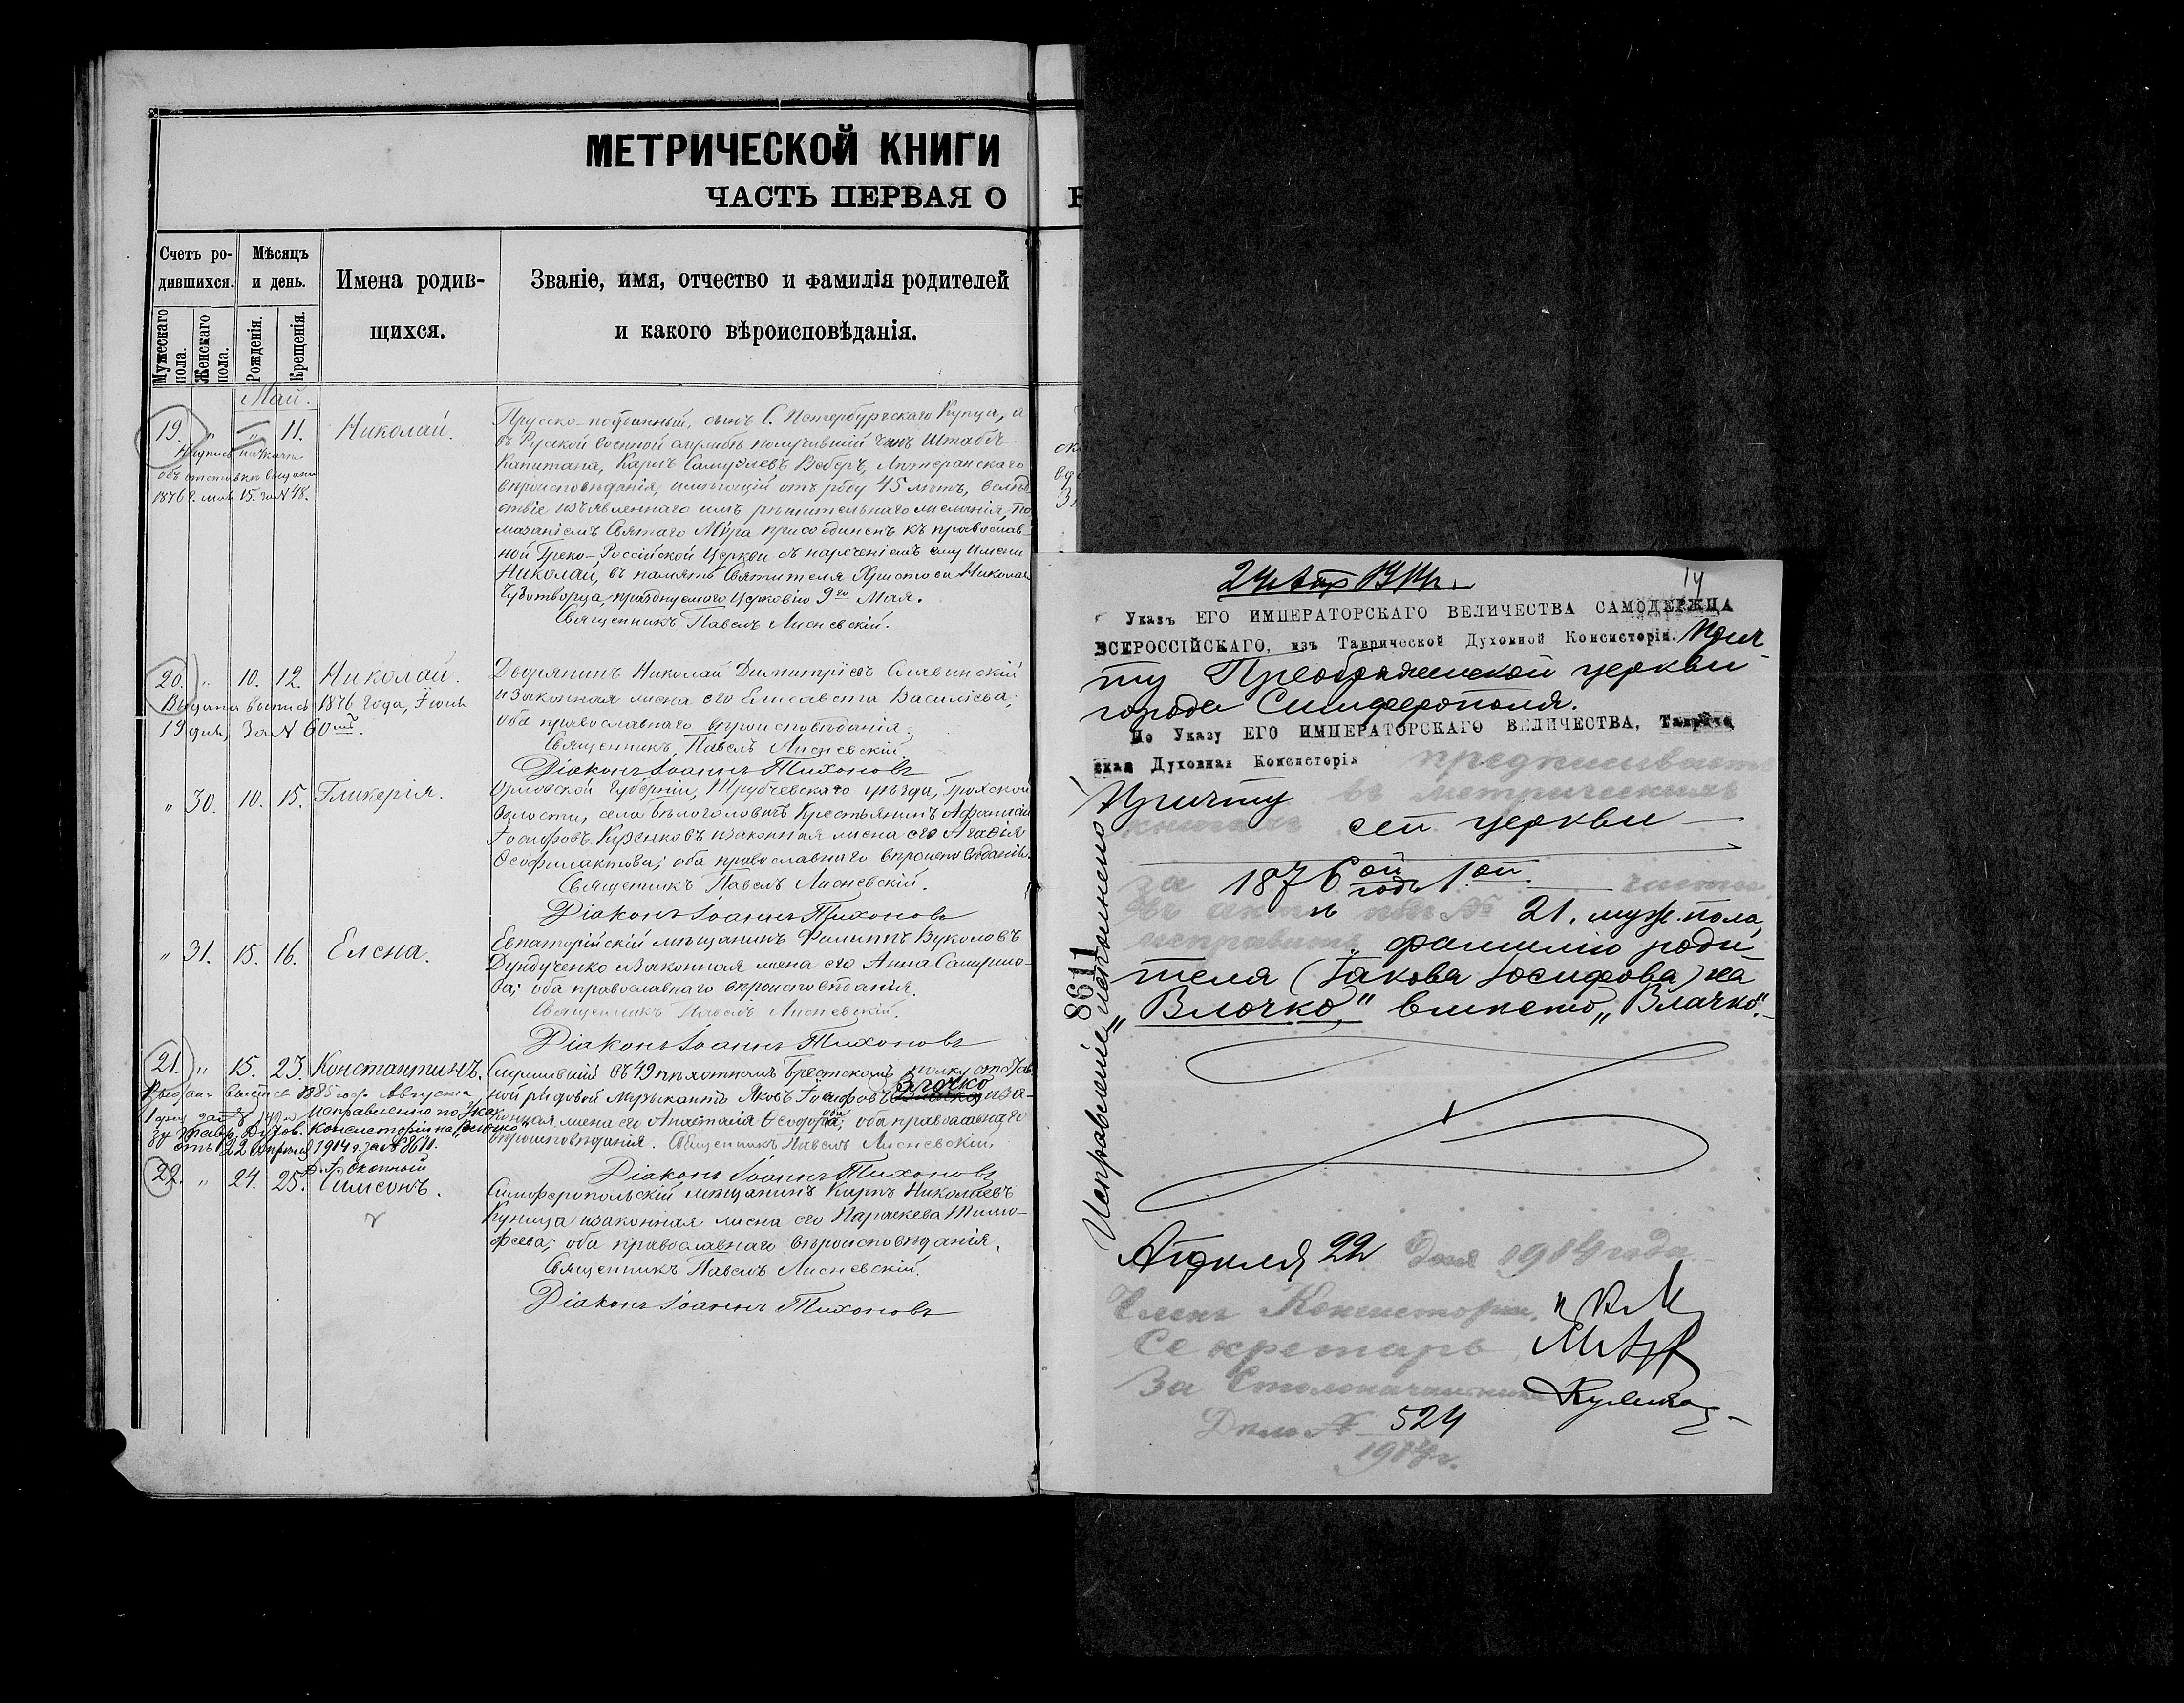 МЕТРИЧЕСКОЙ КНИГИ
ЧАСТЬ ПЕРВАЯ О
Счетъ ро-
дившихся.
Мѣсяцъ
и день.
Имена родив-
щихся.
Званіе, имя, отчество и фамилія родителей
и какого вѣроисповѣданія.
Мужескаго пола.
Женскаго пола.
Рожденія.
Крещенія.
Май.
19. " " 11. Николай.
1876 г. 15. за № 48.
Прусско-подданный, сынъ С. Петербургскаго Купца, а
въ Русской военной службѣ получившій чинъ Штабсъ-
Капитана, Карлъ Самуиловъ Веберъ, Лютеранскаго
вѣроисповѣданія, имѣющій отъ роду 45 лѣтъ, вслѣд
ствіе изъявленнаго имъ рѣшительнаго желанія, по
мазаніемъ Святаго Мѵра присоединенъ къ православ-
ной Греко-Россійской Церкви съ нареченіемъ ему имени
Николай, въ память Святителя Христова Николая
Чудотворца, празднуемаго Церковію 9го Мая.
Священникъ Павелъ Лисневскій.
20. " 10. 12. Николай.
Выдана выпись 1876 года, Іюня
19 дня, за № 60
Дворянинъ Николай Димитріевъ Славинскій
и законная жена его Елисавета Василіева;
оба православнаго вѣроисповѣданія.
Священникъ, Павелъ Лисневскій
Діаконъ Іоаннъ Тихоновъ
" 30. 10. 15. Гликерія.
Орловской Губерніи, Трубчевскаго уѣзда,
волости, села Бѣлоголовичъ Крестьянинъ Афанасій
Іосифовъ Курсиковъ и законная жена его Агафія
Ѳеофилактова; оба православнаго вѣроисповѣданія.
Священникъ Павелъ Лисневскій.
Діаконъ Іоаннъ Тихоновъ
" 31. 15. 16. Елена.
Евпаторійскій мѣщанинъ Филиппъ Вуколовъ
Дундученко и законная жена его Анна
ва; оба православнаго вѣроисповѣданія.
Священникъ Павелъ Лисневскій.
Діаконъ Іоаннъ Тихоновъ
21. " 15. 23. Константинъ.
Выдана выпись 1885 год. Августа
1 дня за № 149. Исправлено по Ука
зу Тавр. Духов. Консисторіи на "Влочко"
отъ 22 Апрѣля 1914 г. за № 8611.
Служившій въ 49 пѣхотномъ Брестскомъ полку отстав
Влочко
ной рядовой Музыкантъ Яковъ Іосифовъ и за-
конная жена его Анастасія Ѳеодорова; оба православнаго
вѣроисповѣданія. Священникъ Павелъ Лисневскій.
Діаконъ Іоаннъ Тихоновъ
22. " 24. 25. Симеонъ.
Симферопольскій мѣщанинъ Карпъ Николаевъ
Куница и законная жена его Параскева Тимо-
феева; оба православнаго вѣроисповѣданія.
Священникъ Павелъ Лисневскій.
Діаконъ Іоаннъ Тихоновъ
24 Апр 1914 г.
14
Указъ ЕГО ИМПЕРАТОРСКАГО ВЕЛИЧЕСТВА САМОДЕРЖЦА
ВСЕРОССІЙСКАГО, изъ Таврической Духовной Консисторіи. Прич
ту Преображенской церкви
города Симферополя.
По Указу ЕГО ИМПЕРАТОРСКАГО ВЕЛИЧЕСТВА, Тавриче
ская Духовная Консисторія предписываетъ
Причту въ метрическихъ
книгахъ сей церкви
за 1876ой годъ 1.ой части
въ актѣ подъ № 21. муж. пола,
исправить фамилію роди
теля (Іакова Іосифова) на
"Влочко" вмѣсто "Влачко".
Апрѣля 22 дня 1914 года.
Членъ Консисторіи,
Секретарь
За Столоначальника
Дѣло № 524
1914 г.
8611
Исправленіе исполнено